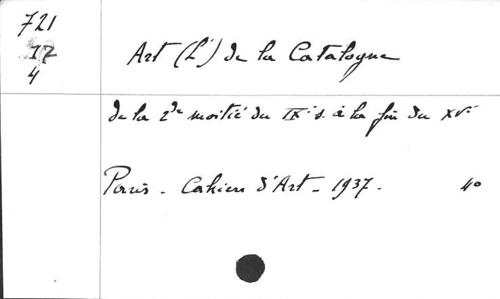 721
17
4
Art (L') de la Catalogne
de la 2de moitié du IXe s. à la fin du XVe
Paris - Cahiers d'Art - 1937. 4o